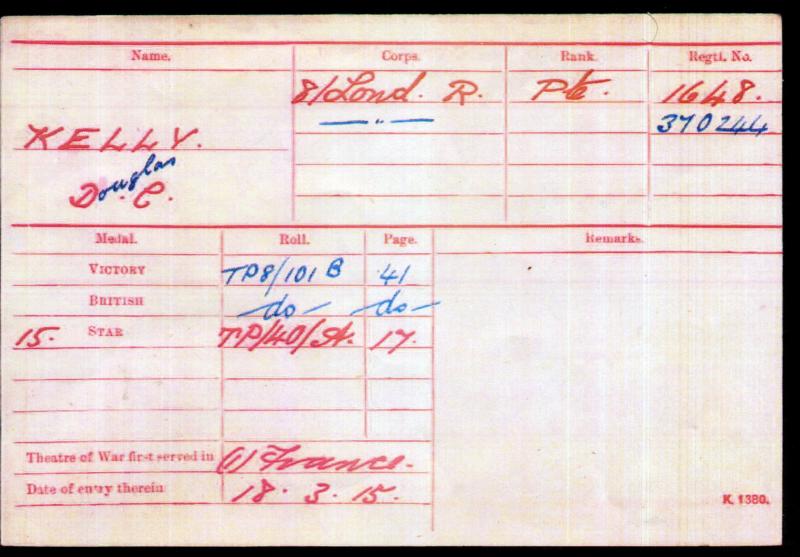 Name. Corps. Rank. Regtl. No.
8/Lond. R. Pte. 1648.
—"— 370244
KELLY.
Douglas C.
Medal. Roll. Page. Remarks.
VICTORY TP8/101 B 41
BRITISH —do— —do—
15. STAR TP/40/St. 17.
Theatre of War first served in (1) France.
Date of entry therein 18.3.15.
K. 1380.